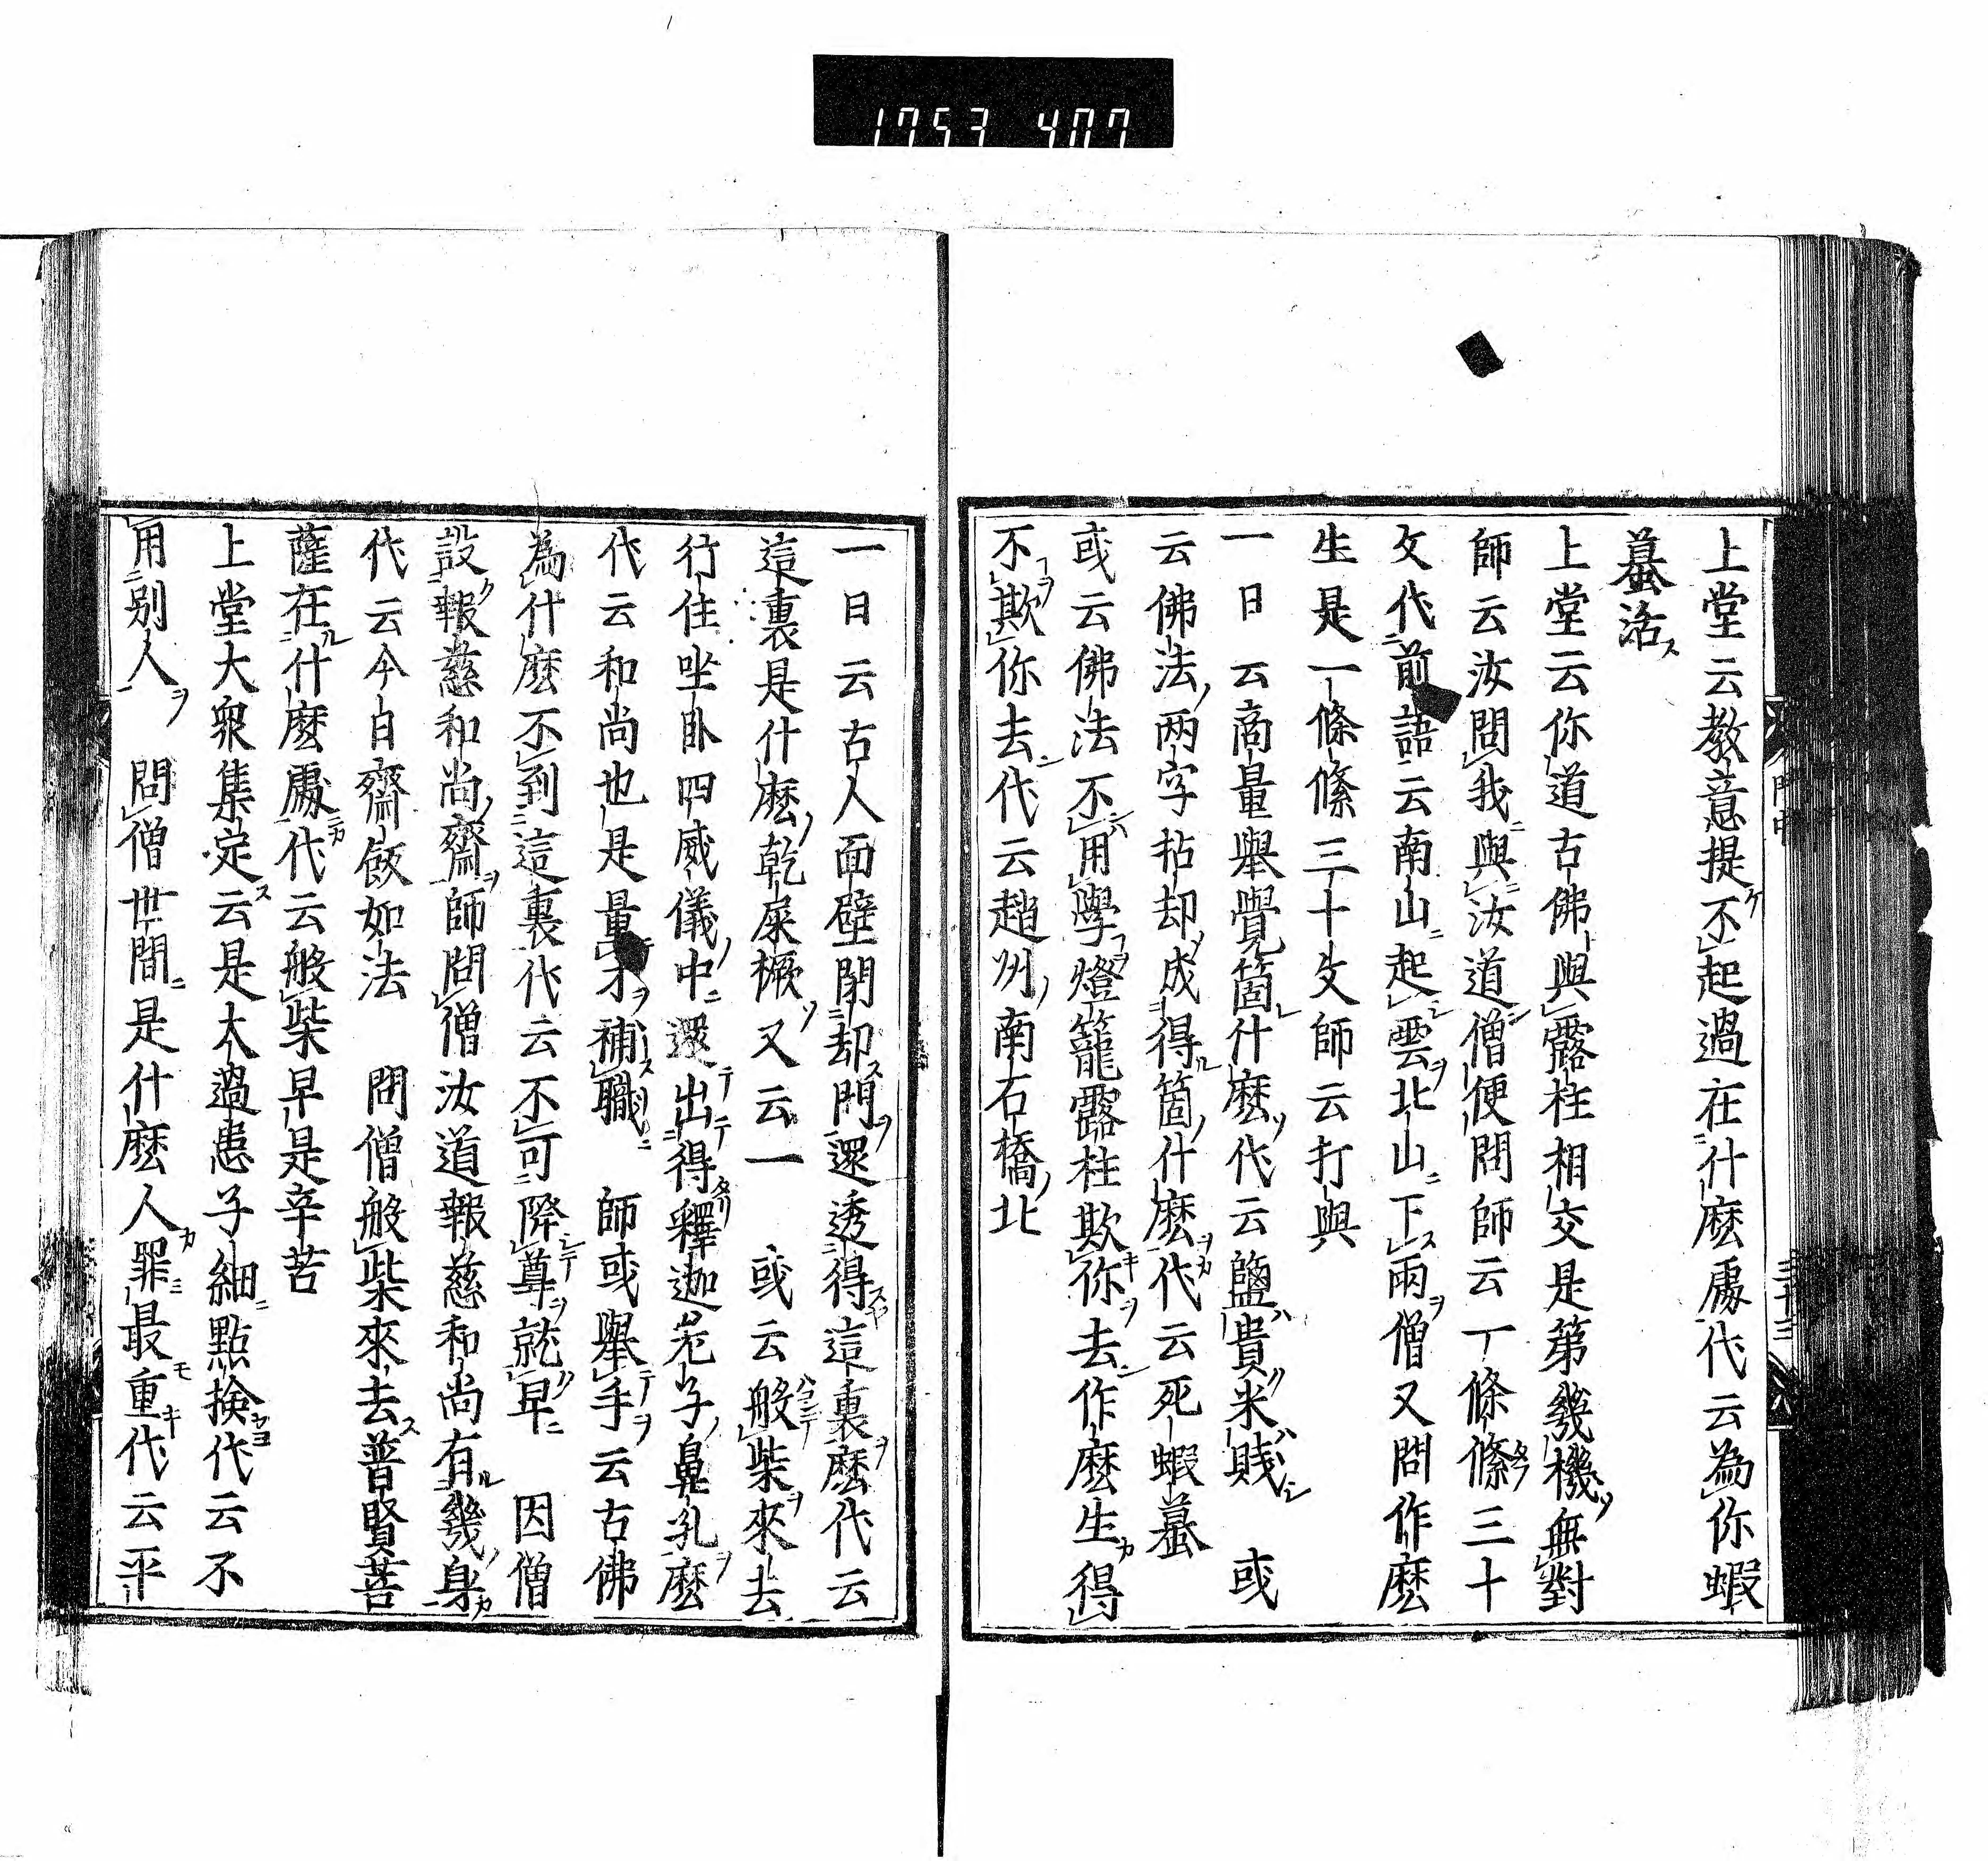 1753 407
上堂云教意提不起過在什麽處代云為你蝦
蟇活
上堂云你道古佛與露柱相交是第幾機無對
師云汝問我與汝道僧便問師云一條絛三十
文代前語云南山起雲北山下雨僧又問作麽
生是一條絛三十文師云打與
一日云商量舉覺箇什麽代云鹽貴米賤 或
云佛法兩字拈却成得箇什麽代云死蝦蟇
或云佛法不用學燈籠露柱欺你去作麽生得
不欺你去代云趙州南石橋北
一日云古人面壁閉却門還透得這裏麽代云
這裏是什麽乾屎橛又云一 或云般柴來去
行住坐臥四威儀中還出得釋迦老子鼻孔麽
代云和尚也是量才補職 師或舉手云古佛
為什麽不到這裏代云不可降尊就卑 因僧
設報慈和尚齋師問僧汝道報慈和尚有幾身
代云今日齋飯如法 問僧般柴來去普賢菩
薩在什麽處代云般柴早是辛苦
上堂大衆集定云是大過患子細點檢代云不
用別人 問僧世間是什麽人罪最重代云平